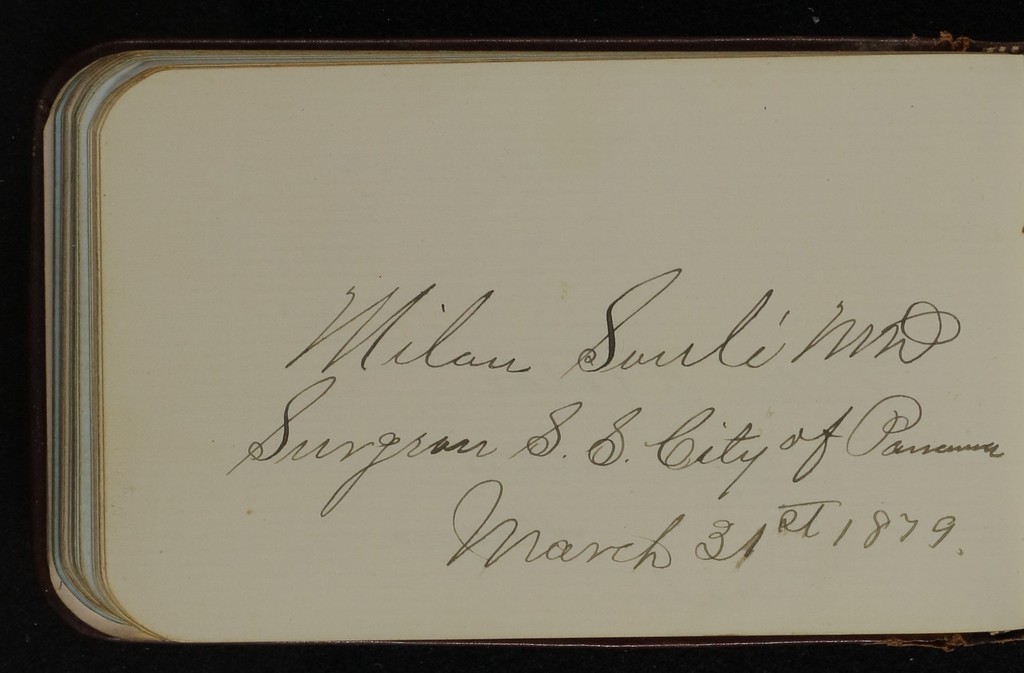 Milan Soulé MD
Surgeon S. S. City of Panama
March 31st 1879.